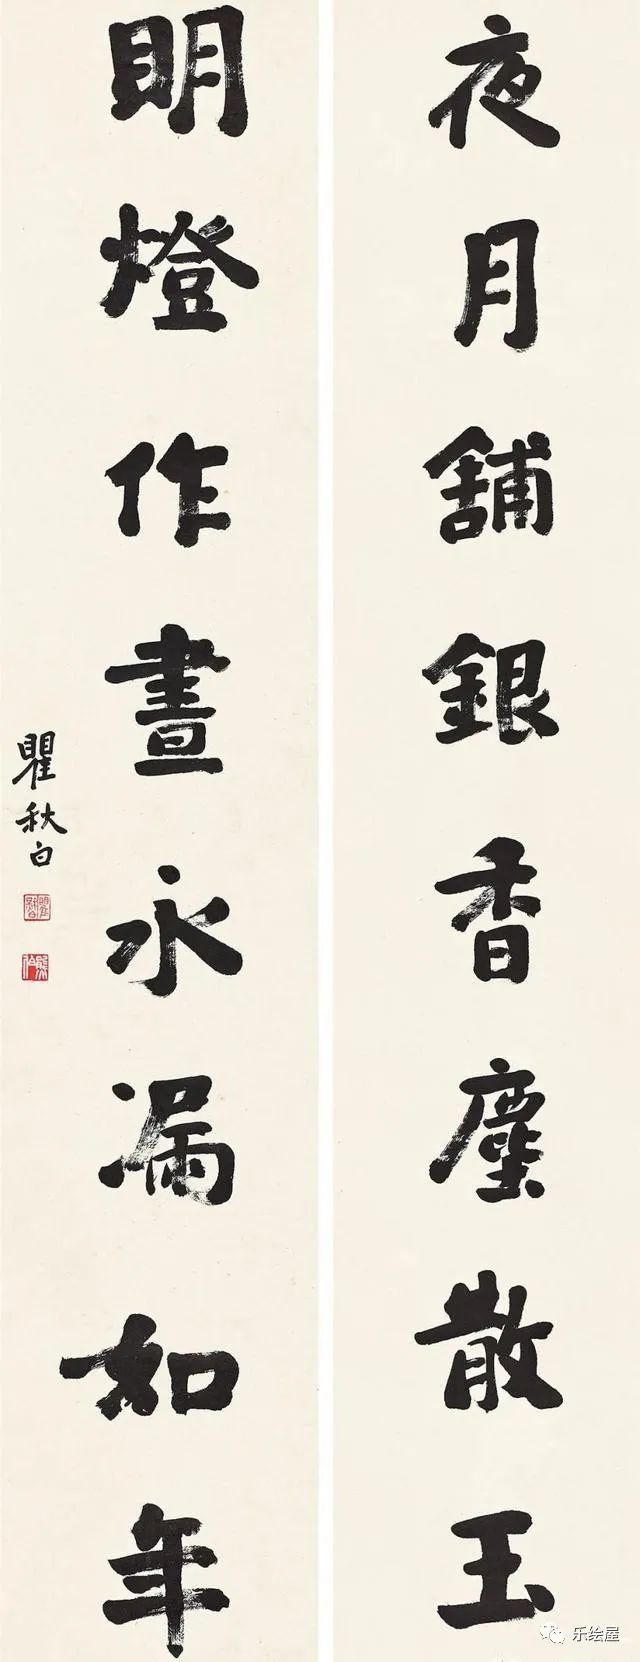 夜月舖銀香塵散玉
明燈作晝永漏如年
瞿秋白
乐绘屋